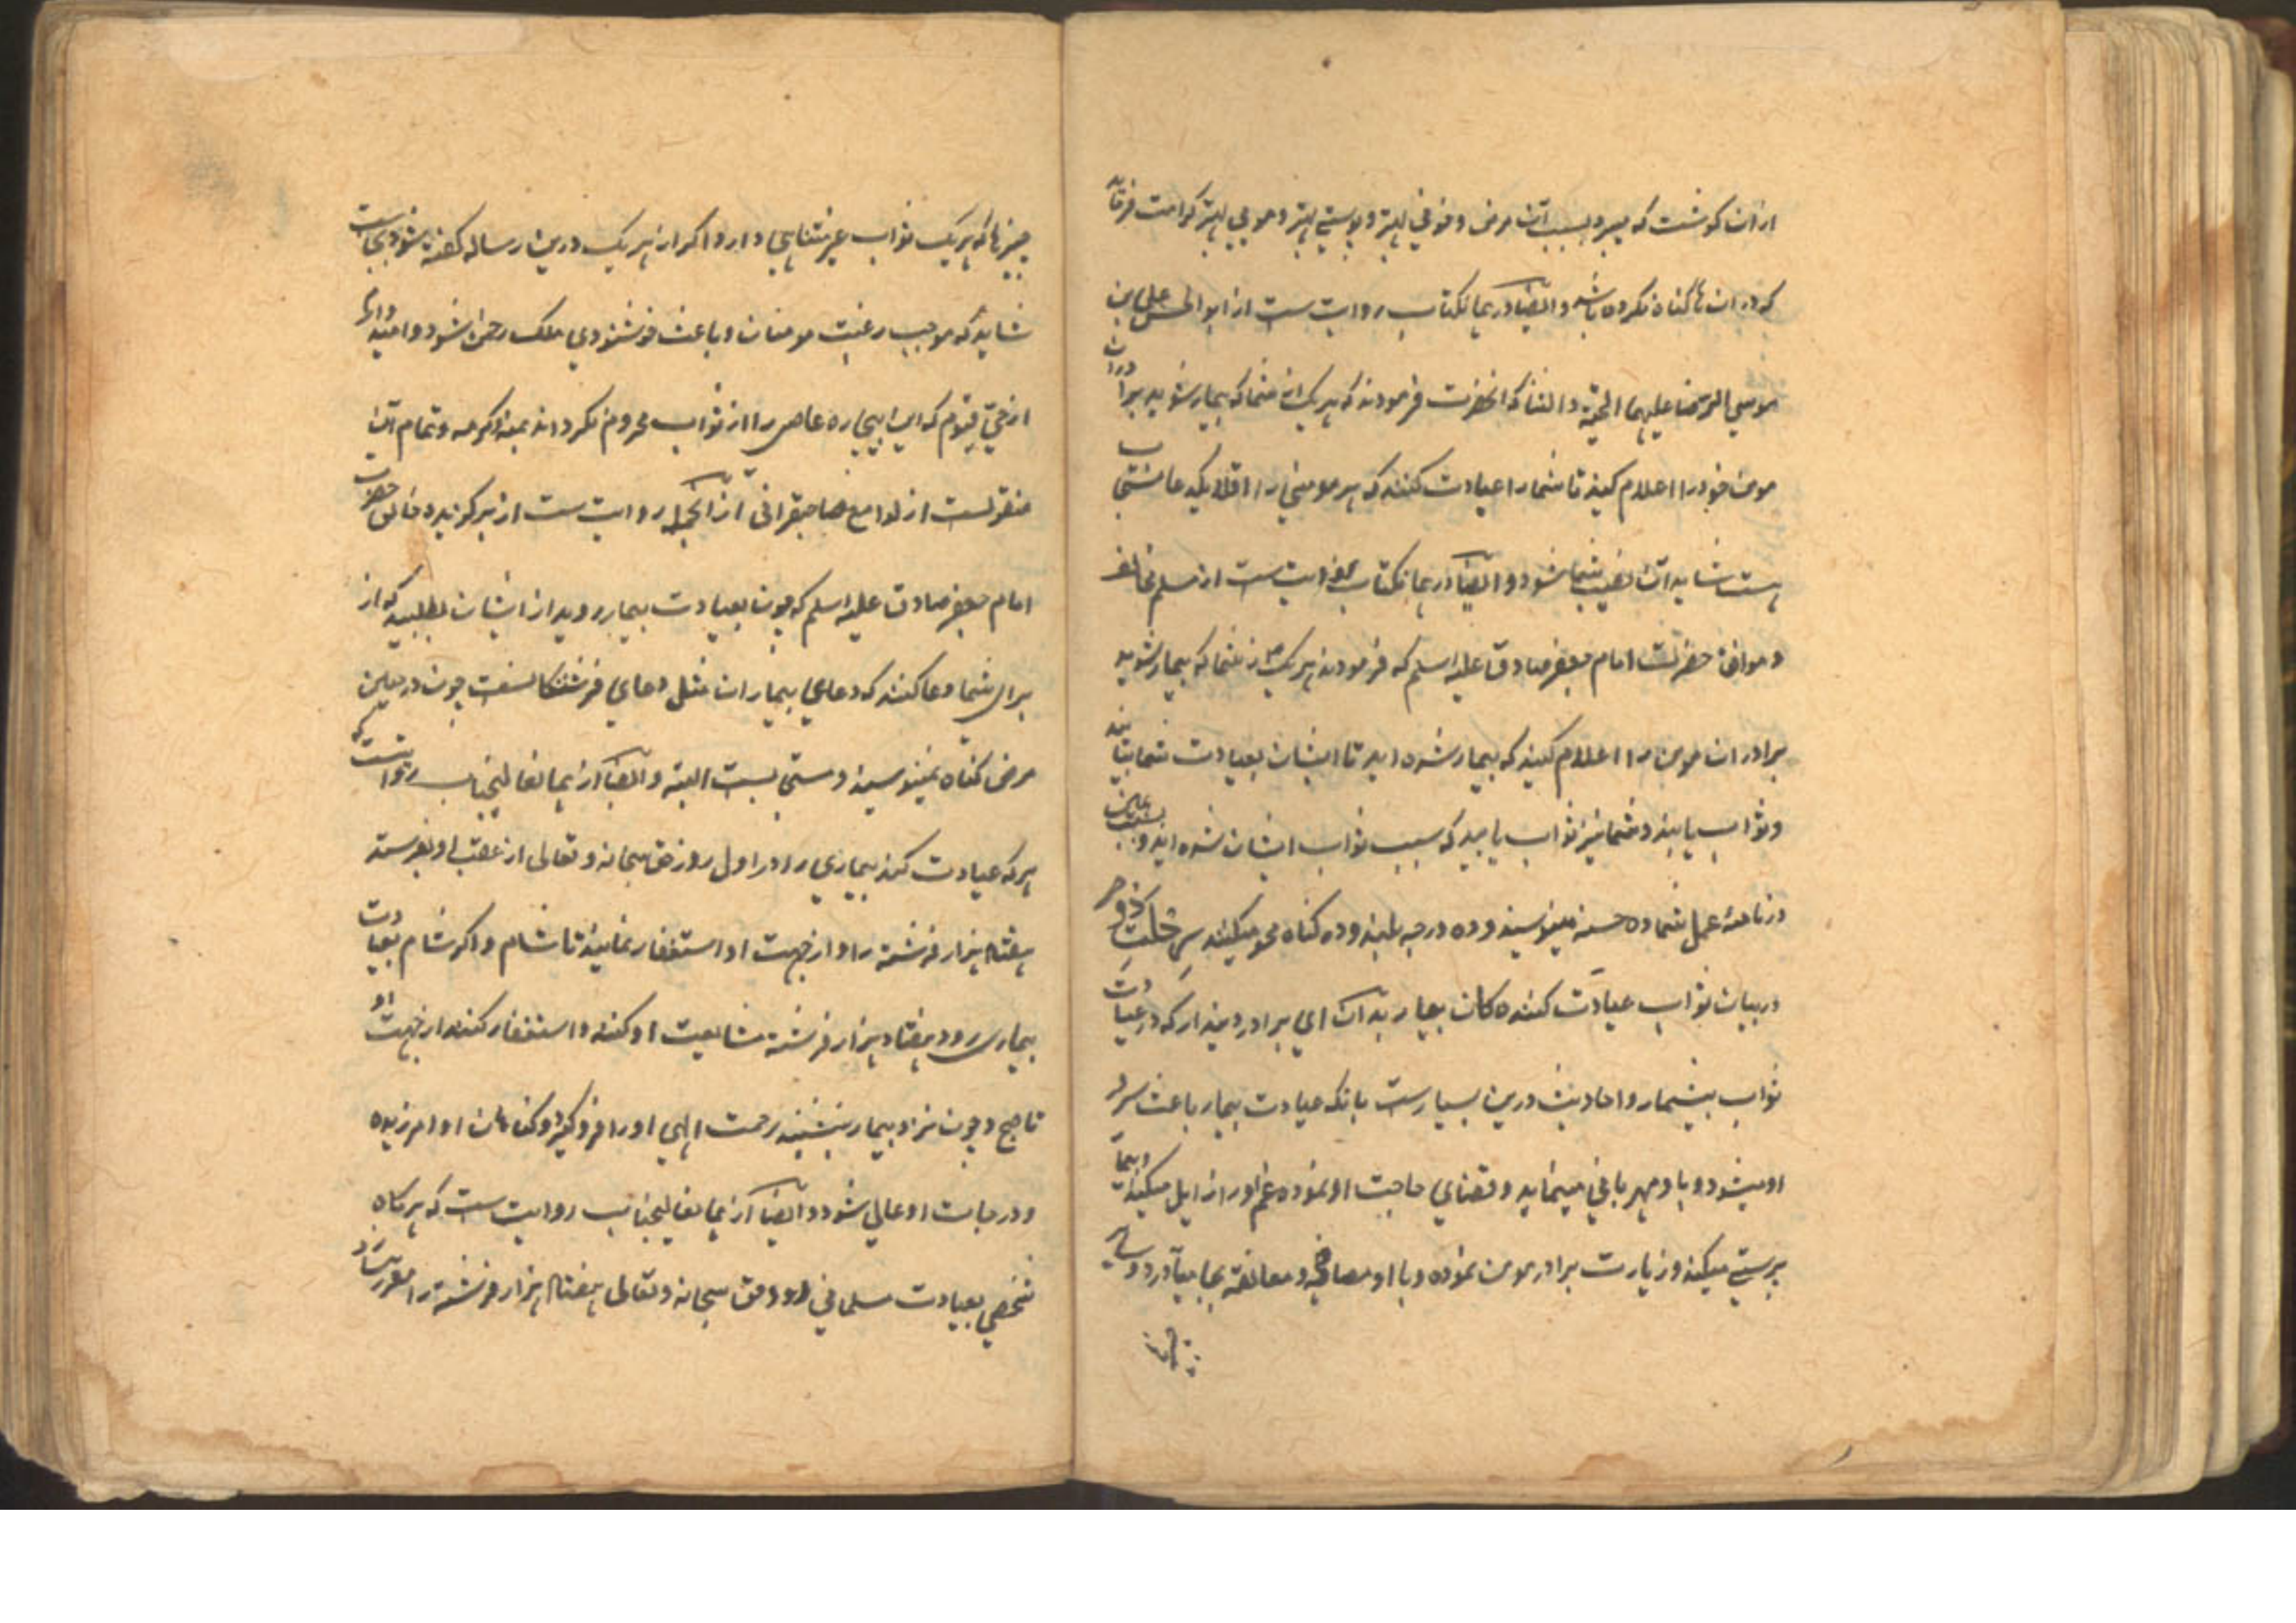 ازان گوشت که میبرد بسبب آن مرض و خونی بهتر و پوستی بهتر و مویی بهتر کرامت فرماید
که در ان ها گناه نکرده باشد و ایضا در همانکتاب روایت ست از ابو الحسن علی بن
موسی الرضا علیهما التحیة و الثنا که انحضرت فرمودند که هر یک از شما که بیمار شوید برادران
مومن خود را اعلام کنید تا شما را عیادت کنند که هر مومنی را اقلا یکدعا مستجاب
هست شاید آن نصیب شما شود و ایضا در همانکتاب روایت ست از مسلم مخالف
و موافق حضرت امام جعفر صادق علیه اسلم که فرمودند هر یک از شما که بیمار شوید
برادران مومن را اعلام کنید که بیمار شده اید تا ایشان بعیادت شما بیایند
و ثواب یابند و شما نیز ثواب یابید که سبب ثواب ایشان شده اید و بسبب این
در نامه عمل شما ده حسنه مینویسند و ده درجه بلند و ده گناه محو میکنند
در بیان ثواب عیادت کننده کان بیمار بدان ای برادر دیندار که در عیادت
ثواب بیشمار و احادیث درین بسیارست بانکه عیادت بیمار باعث سرور
او میشود و با و مهربانی مینماید و قضای حاجت او نموده غم او را زایل میکند و بیمار
پرستی میکند و زیارت برادر مومن نموده و با او مصافحه و معانقه بجا میآورد و سایر
چیزها که هر یک ثواب غیر متناهی دارد اگر از هر یک درین رساله گفته شود بجاست
شاید که موجب رغبت مومنان و باعث خوشنودی ملک رحمن شود و امید وارم
از حی قیوم که این بیچاره عاصی را از ثواب محروم نگرداند بمنه و کرمه و تمام آن
منقولست از لوامع صاحبقرانی از انجمله روایت ست از برگزیده خالق حضرت
امام جعفر صادق علیه اسلم که چون بعیادت بیمار روید از ایشان بطلبید که از
برای شما دعا کنند که دعای بیماران مثل دعای فرشتگانست چون در حین
مرض گناه نمینویسند و ستی بست البته و ایضا از همان عالیجناب روایتست که
هر که عیادت کند بیماری را در اول روز حق سبحانه و تعالی از عقب او بفرستد
هفتاد هزار فرشته را و از جهت او استغفار نمایند تا شام و اگر شام بعیادت
بیماری رود هفتاد هزار فرشته مشایعت او کنند و استغفار کنند از جهت او
تا صبح و چون نزد بیمار بنشیند رحمت الهی او را فرو گیرد و گناهان او امرزیده
و درجات او عالی شود و ایضا از همان عالیجناب روایت ست که هر گاه
شخصی بعیادت مسلمانی رود حق سبحانه و تعالی هفتاد هزار فرشته را مقرر سازد